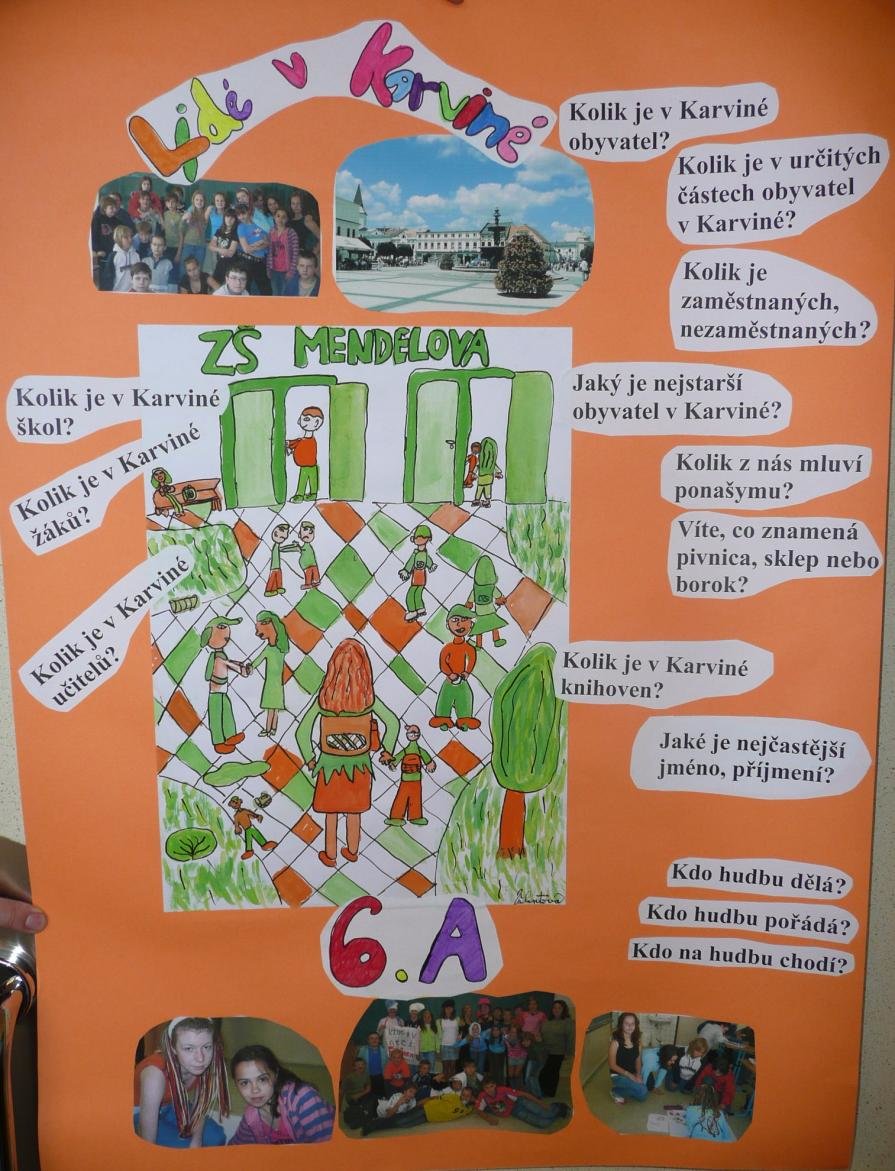 Lidé v Karviné
Kolik je v Karviné
obyvatel?
Kolik je v určitých
částech obyvatel
v Karviné?
Kolik je
zaměstnaných,
nezaměstnaných?
ZŠ MENDELOVA
Kolik je v Karviné
škol?
Kolik je v Karviné
žáků?
Kolik je v Karviné
učitelů?
Jaký je nejstarší
obyvatel v Karviné?
Kolik z nás mluví
ponašymu?
Víte, co znamená
pivnica, sklep nebo
borok?
Kolik je v Karviné
knihoven?
Jaké je nejčastější
jméno, příjmení?
Kdo hudbu dělá?
Kdo hudbu pořádá?
Kdo na hudbu chodí?
6.A